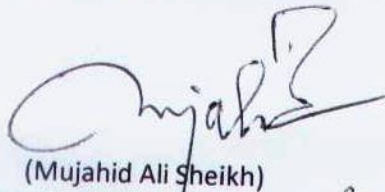 Mujahid
(Mujahid Ali Sheikh)